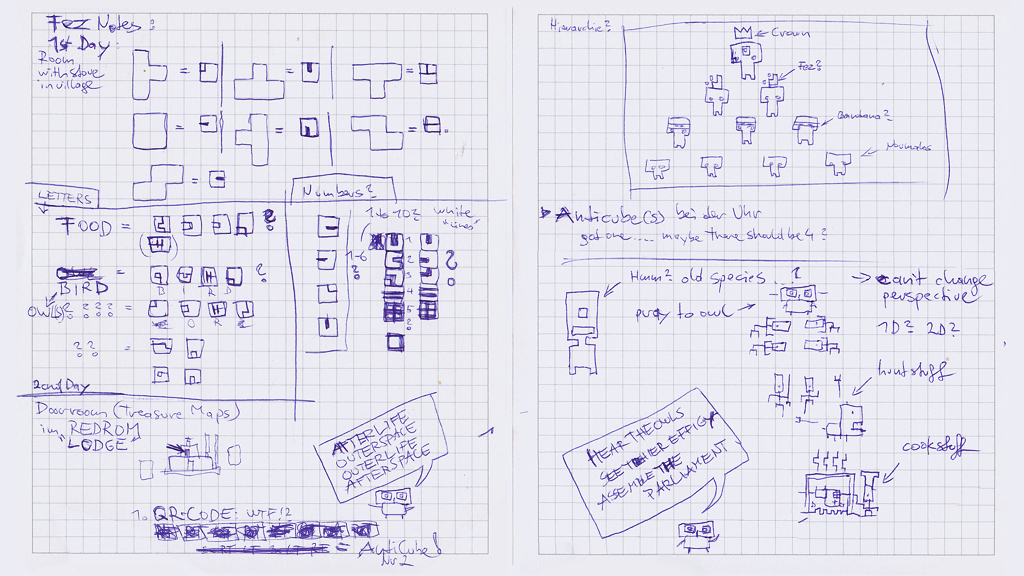 Fez Notes:
1st Day:
Room
with stove
in village
LETTERS
Numbers?
FOOD =
?
1 to 10?
white
"Lines"
1-6
?
1
2
3
4
5
?
BIRD
B I R D
?
OWLS? ? ? ? =
O R
? ? =
2nd Day
Doorroom (Treasure Maps)
im "REDROM
LODGE"
AFTERLIFE
OUTERSPACE
OUTERLIFE
AFTERSPACE
1. QR-CODE: WTF!?
= AntiCube!
Nr 2
Hierarchie?
Crown
Fez?
Bandana?
Normalos
Anticube(s) bei der Uhr
got one .... maybe there should be 4?
Hmm? old species ..
?
pray to owl
→ can't change
perspective
1D? 2D?
hunt stuff
cook stuff
HEAR THE OWLS
SEE THEIR EFFIGY
ASSEMBLE THE
PARLIAMENT